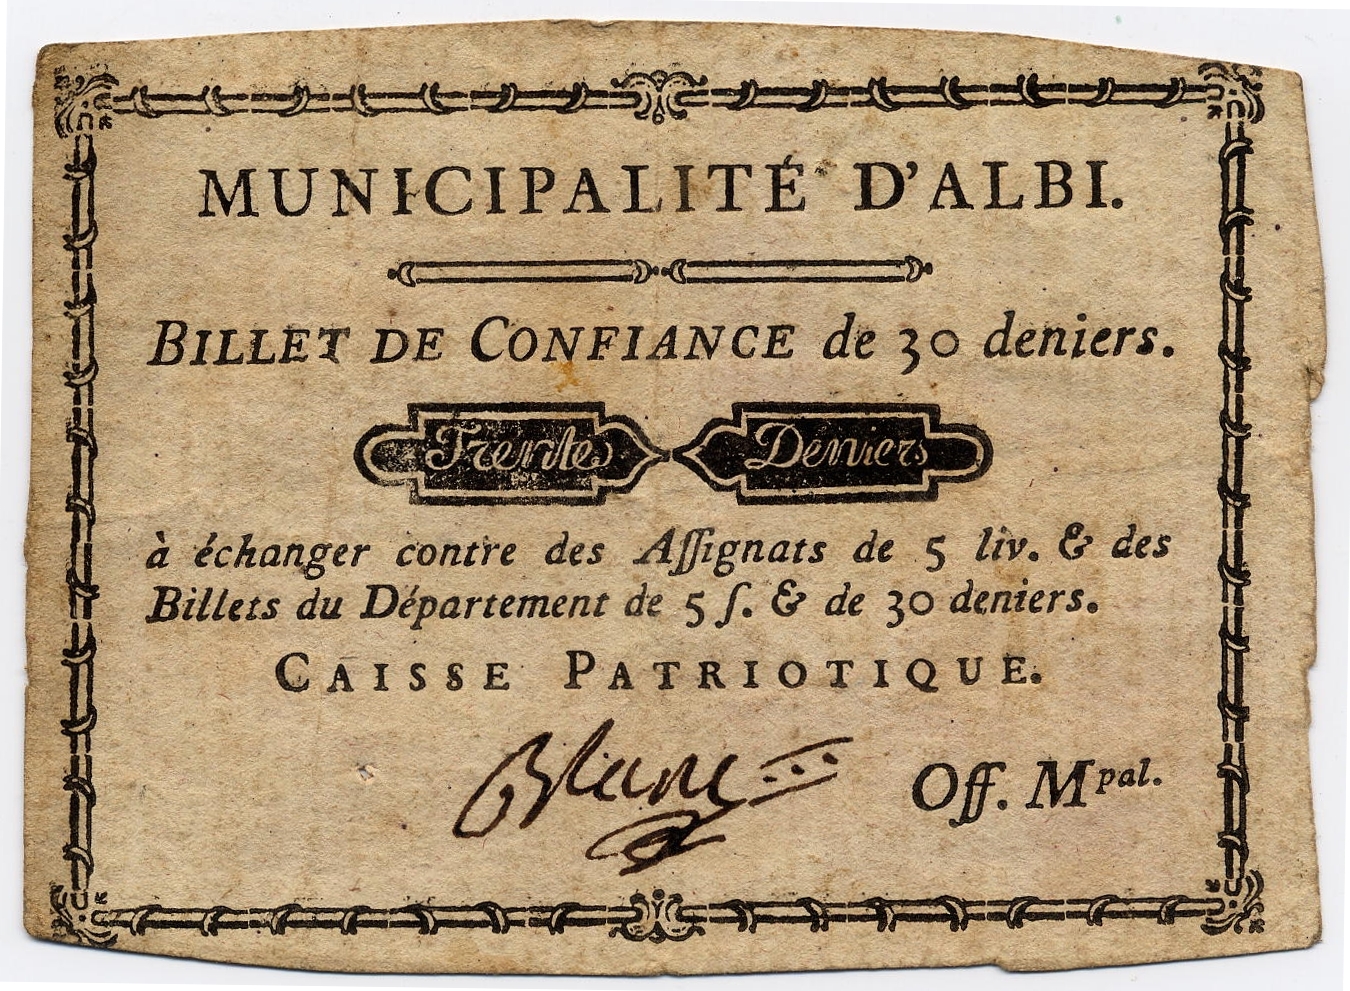 MUNICIPALITÉ D'ALBI.
BILLET DE CONFIANCE de 30 deniers.
Trente Deniers
à échanger contre des Aſſignats de 5 liv. & des
Billets du Département de 5 ſ. & de 30 deniers.
CAISSE PATRIOTIQUE.
Blanc
Off. Mpal.